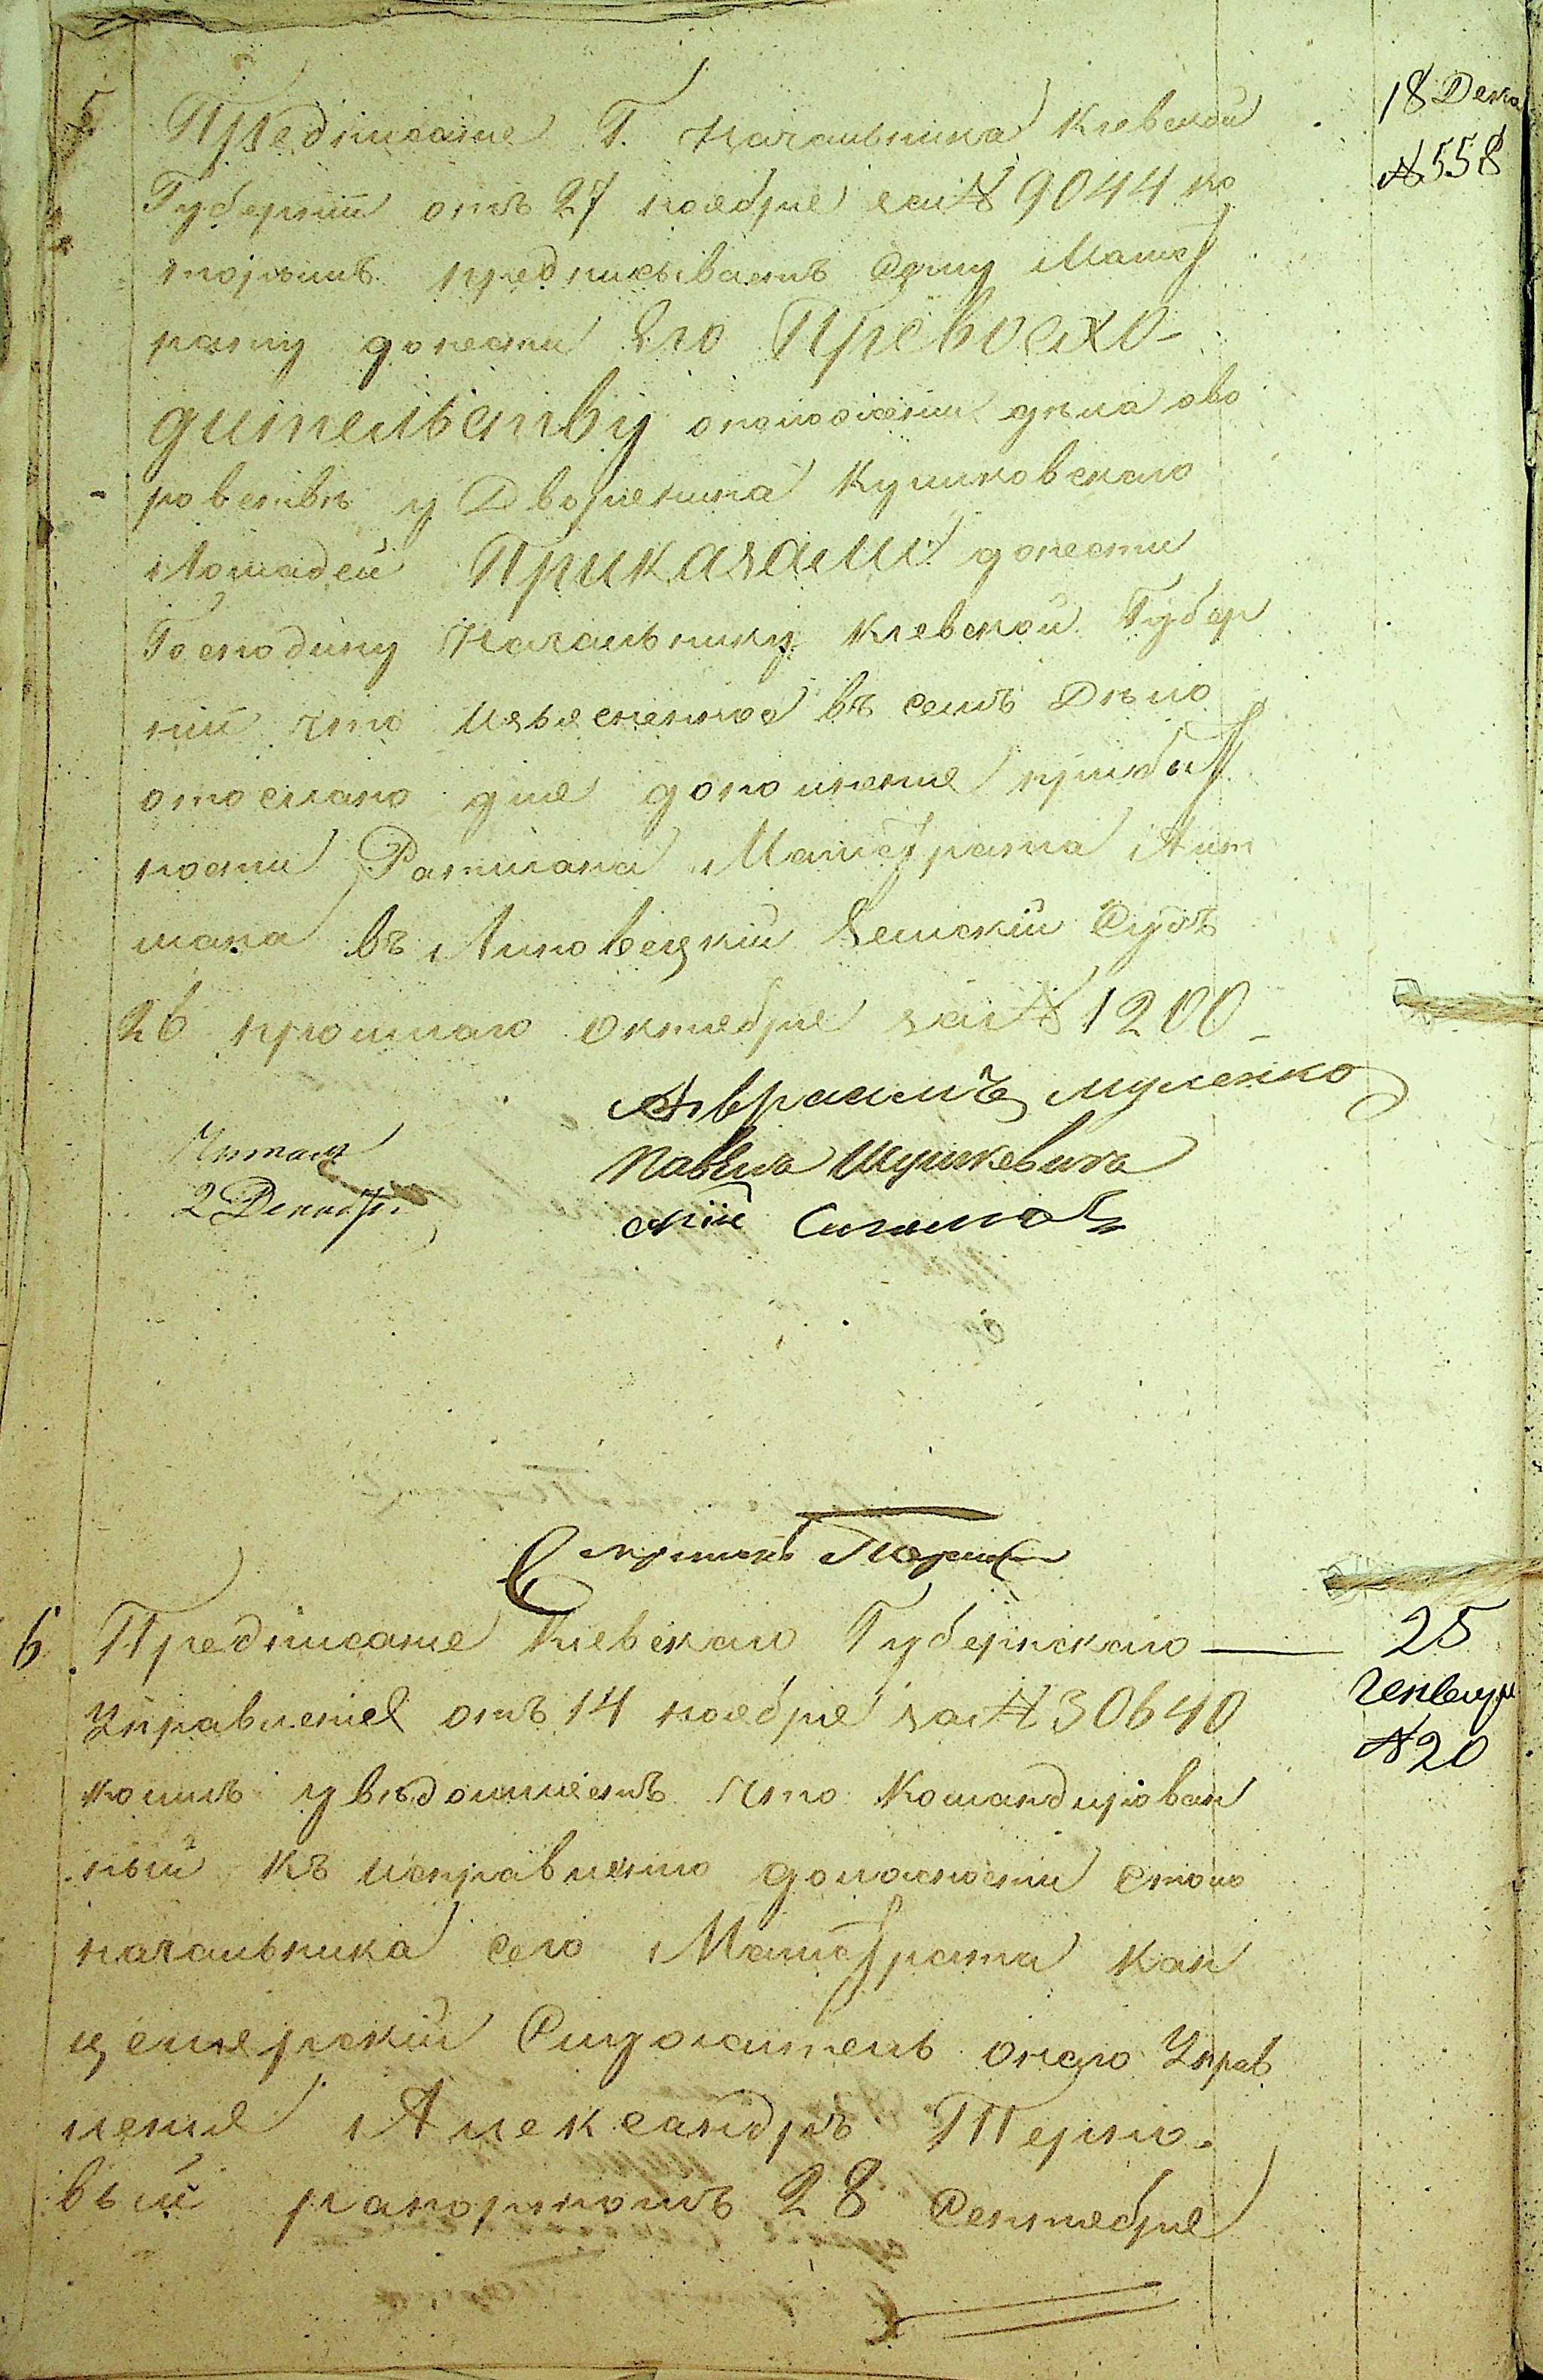 5
18 Дека
№ 558
Предписание Г. Начальника Киевской
Губернии отъ 27 ноября за № 9044 ко
торымъ предписываетъ сему Магист
рату донести Его Превосхо-
дительству о положении дѣла о во
ровствѣ у Дворянина Куликовскаго
лошадей Приказали донести
Господину Начальнику Киевской Губер
нии что изъясненное въ семъ Дѣло
отослано для дополнения при быт
ности Ратмана Магистрата Лит
мана въ Липовецкий Земский Судъ
26 прошлаго октября за № 1200
Авраамъ
Павелъ
Читалъ
2 Декабр.
Секретарь
6. Предписание Киевскаго Губернскаго
25
Генваря
№ 20
Управления отъ 14 ноября за № 30640
коимъ увѣдомляетъ что командирован
ный къ исправлению должности столо
начальника сего Магистрата кан
целярский Служитель онаго Управ
ления Александръ Терно-
вый рапортомъ 28 Сентября